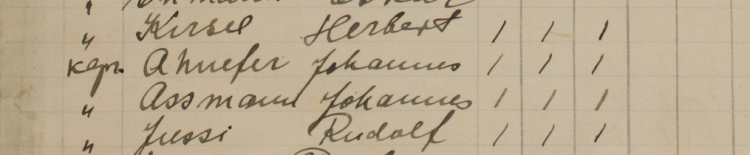 " Kirsel Herbert / / /
kapr. Ahuefer Johannes / / /
" Assmann Johannes / / /
" Jussi Rudolf / / /